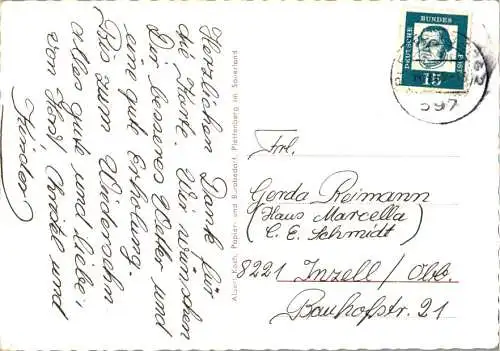 Herzlichen Dank für
die Karte. Wir wünschen
Dir besseres Wetter und
eine gute Erholung.
Bis zum Wiedersehn
alles gute und liebe
von Horst, Christel und
Kinder
Albert Koch, Papier- und Bürobedarf, Plettenberg im Sauerland
DEUTSCHE
BUNDES
POST
15
597
Frl.
Gerda Reimann
(Haus Marcella
C. E. Schmidt)
8221 Inzell/Obb.
Bauhofstr. 21